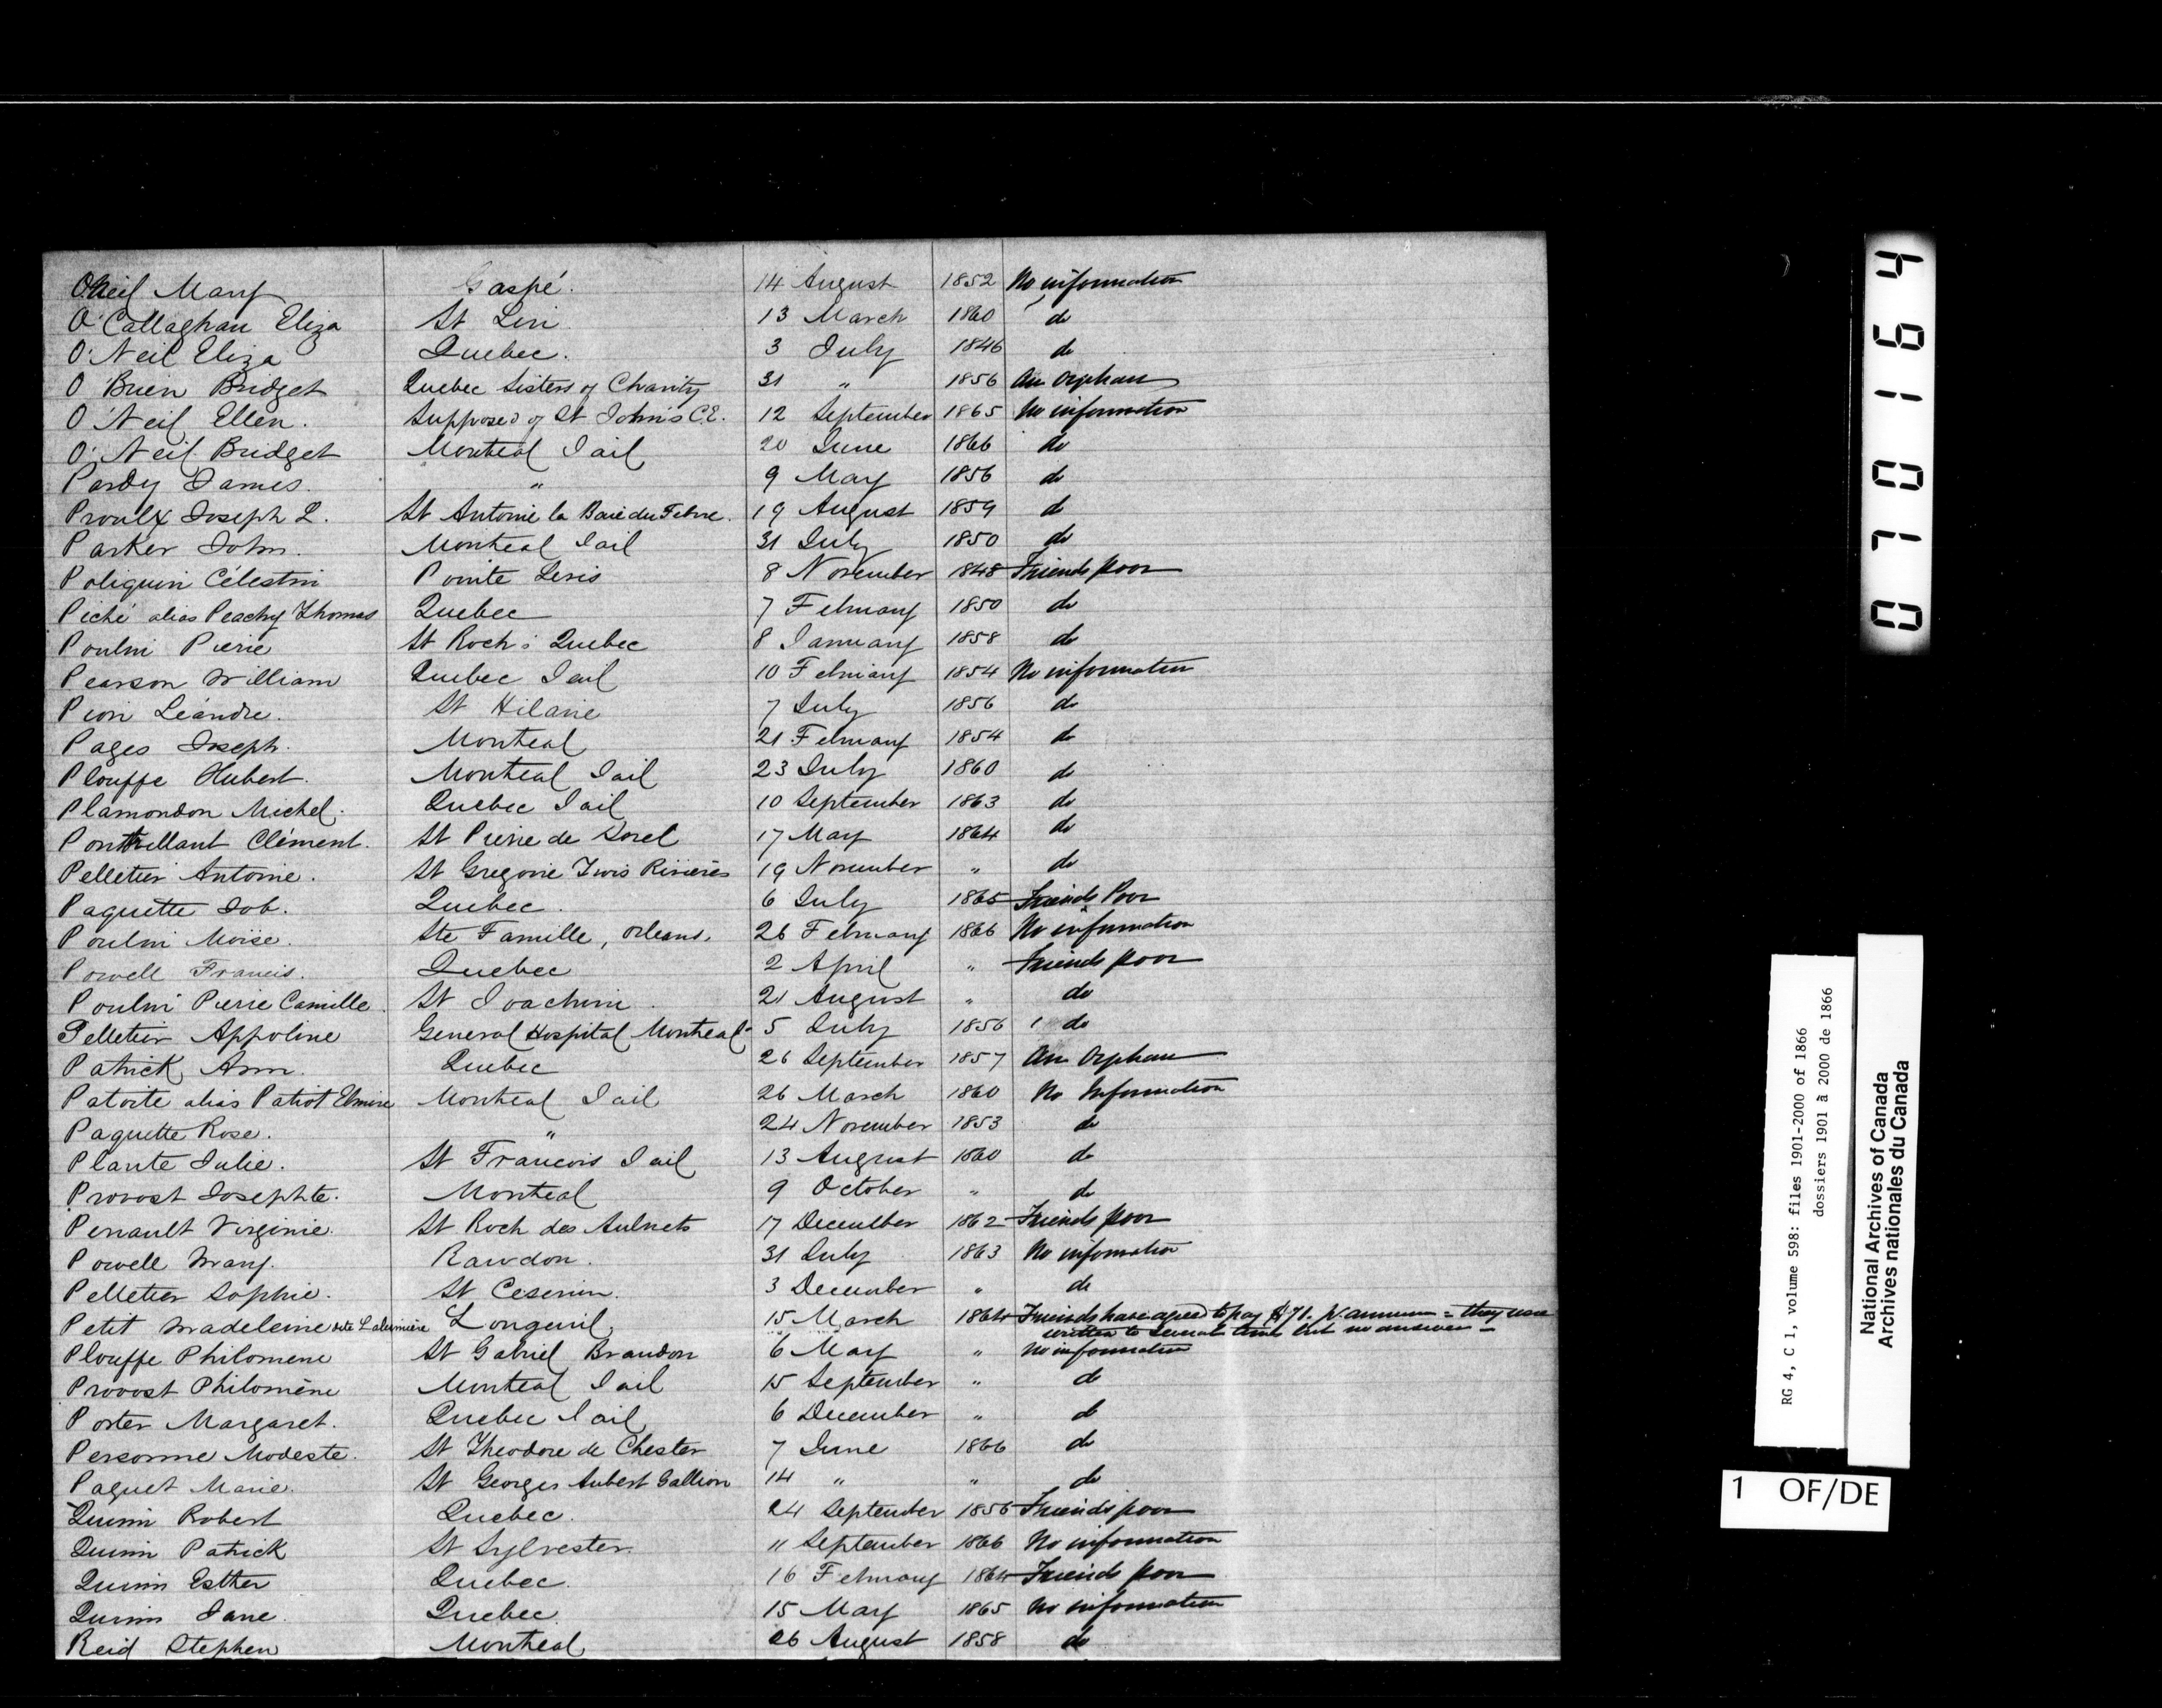 O'Neil Mary Gaspé. 14 August 1852 No information
O'Callaghan Eliza St Lin 13 March 1860 do
O'Neil Eliza Quebec. 3 July 1846 do
O Brien Bridget Quebec Sisters of Charity 31 " 1856 An Orphan
O'Neil Ellen. Supposed of St John's C.E. 12 September 1865 No information
O'Neil Bridget Montreal Jail 20 June 1866 do
Pardy James. " 9 May 1856 do
Proulx Joseph L. St Antoine la Baie du Febvre. 19 August 1859 do
Parker John. Montreal Jail 31 July 1850 do
Poliquin Célestin Pointe Levis 8 November 1848 Friends poor
Piché alias Peachy Thomas Quebec 7 February 1850 do
Poulin Pierre St Roch's Quebec 8 January 1858 do
Pearson William Quebec Jail 10 February 1854 No information
Pion Léandre. St Hilaire 7 July 1856 do
Pages Joseph. Montreal 21 February 1854 do
Plouffe Hubert. Montreal Jail 23 July 1860 do
Plamondon Michel. Quebec Jail 10 September 1863 do
Clément. St Pierre de Sorel 17 May 1864 do
Pelletier Antoine. St Gregoire Trois Rivières 19 November " do
Paquette Job. Quebec. 6 July 1865 Friends Poor
Poulin Moïse. Ste Famille, Orleans. 26 February 1866 No information
Powell Francis. Quebec 2 April " Friends poor
Poulin Pierre Camille. St Joachim. 21 August " do
Pelletier Appoline General Hospital Montreal 5 July 1856 do
Patrick Ann. Quebec 26 September 1857 An Orphan
Patoite alias Patiot Elmire Montreal Jail 26 March 1860 No Information
Paquette Rose. " 24 November 1853 do
Plante Julie. St Francois Jail 13 August 1860 do
Provost Josephte. Montreal 9 October " do
Perrault Virginie. St Roch des Aulnets 17 December 1862 Friends poor
Powell Mary. Rawdon. 31 July 1863 No information
Pelletier Sophie. St Ceserin. 3 December " do
Petit Madeleine dite Lalumière Longeuil 15 March 1864 Friends have agreed to pay $71. p. annum = they were
written to several times but no answer -
Plouffe Philomene St Gabriel Brandon 6 May " No information
Provost Philomène Montreal Jail 15 September " do
Porter Margaret. Quebec Jail 6 December " do
Personne Modeste. St Theodore de Chester 7 June 1866 do
Paquet Marie. St Georges Aubert Gallion 14 " " do
Quinn Robert Quebec. 24 September 1856 Friends poor
Quinn Patrick St Sylvester. 11 September 1866 No information
Quinn Esther Quebec. 16 February 1864 Friends poor
Quinn Jane. Quebec 15 May 1865 No information
Reid Stephen Montreal 26 August 1858 do
070164
RG 4, C 1, volume 598: files 1901-2000 of 1866
dossiers 1901 à 2000 de 1866
National Archives of Canada
Archives nationales du Canada
1 OF/DE